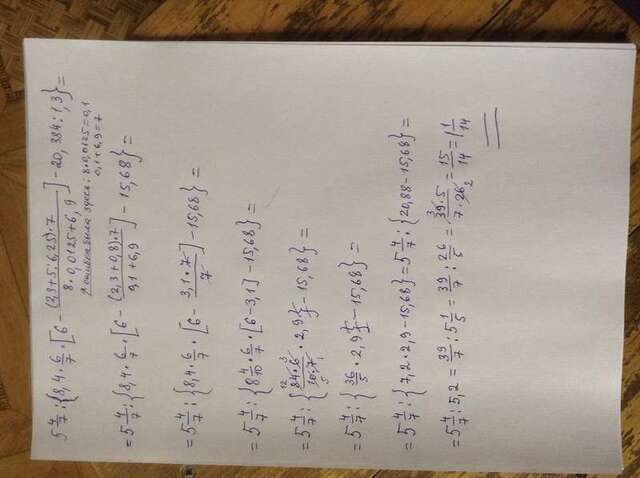 5 4/7 : {8,4 · 6/7 · [6 - (2,3+5:6,25)·7 / 8·0,0125+6,9] - 20,384:1,3} =
↑ ошибка была здесь: 8·0,0125=0,1
0,1+6,9=7
= 5 4/7 : {8,4 · 6/7 · [6 - (2,3+0,8)·7 / 0,1+6,9] - 15,68} =
= 5 4/7 : {8,4 · 6/7 · [6 - 3,1·7 / 7] - 15,68} =
= 5 4/7 : {8 4/10 · 6/7 · [6-3,1] - 15,68} =
= 5 4/7 : {84·6 / 10·7 · 2,9} - 15,68} =
= 5 4/7 : {36/5 · 2,9} - 15,68} =
= 5 4/7 : {7,2·2,9-15,68} = 5 4/7 : {20,88-15,68} =
= 5 4/7 : 5,2 = 39/7 : 5 1/5 = 39/7 : 26/5 = 39·5 / 7·26 = 15/14 = 1 1/14